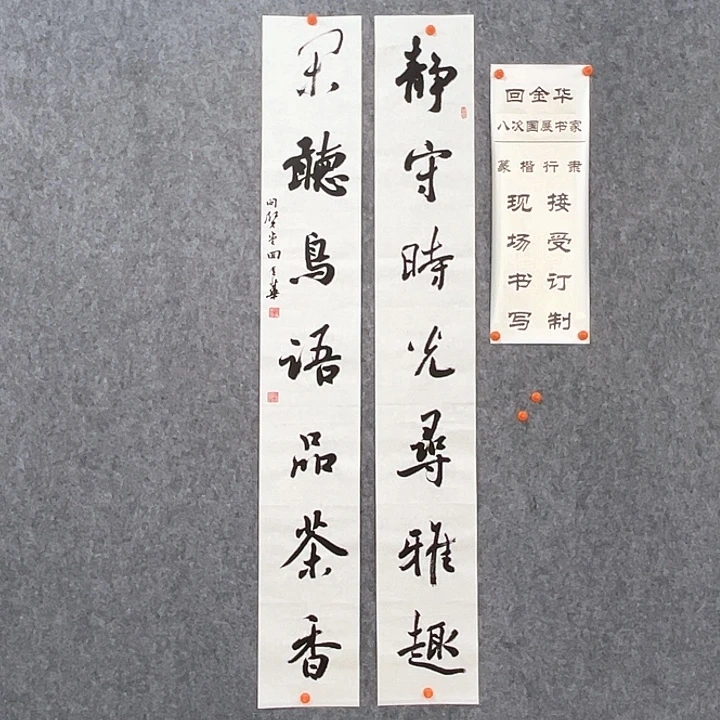 靜守時光尋雅趣
闲聽鳥語品茶香
回金华
八次国展书家
篆楷行隶
接受订制
现场书写